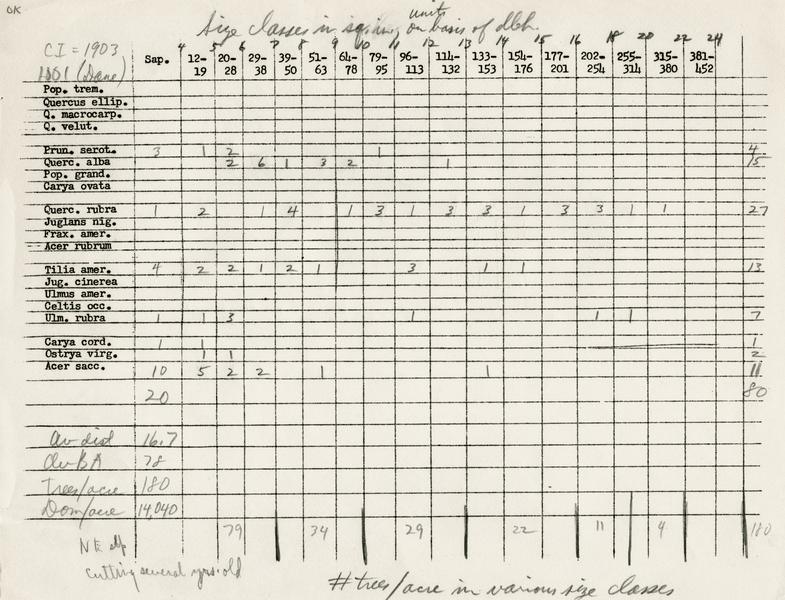 OK
Size classes in sq. in. units on basis of dbh.
4 5 6 7 8 9 10 11 12 13 14 15 16 18 20 22 24
CI = 1903
1101 (Dane)
Sap. 12-19 20-28 29-38 39-50 51-63 64-78 79-95 96-113 114-132 133-153 154-176 177-201 202-254 255-314 315-380 381-452
Pop. trem.
Quercus ellip.
Q. macrocarp.
Q. velut.
Prun. serot. 3 1 2 1 4
Querc. alba 2 6 1 3 2 1 15
Pop. grand.
Carya ovata
Querc. rubra 1 2 1 4 1 3 1 3 3 1 3 3 1 1 27
Juglans nig.
Frax. amer.
Acer rubrum
Tilia amer. 4 2 2 1 2 1 3 1 1 13
Jug. cinerea
Ulmus amer.
Celtis occ.
Ulm. rubra 1 1 3 1 1 1 7
Carya cord. 1 1 1
Ostrya virg. 1 1 2
Acer sacc. 10 5 2 2 1 1 11
20 80
Av dist 16.7
Av BA 78
Trees/acre 180
Dom/acre 14,040
79 34 29 22 11 4 180
cutting several yrs. old
# trees/acre in various size classes